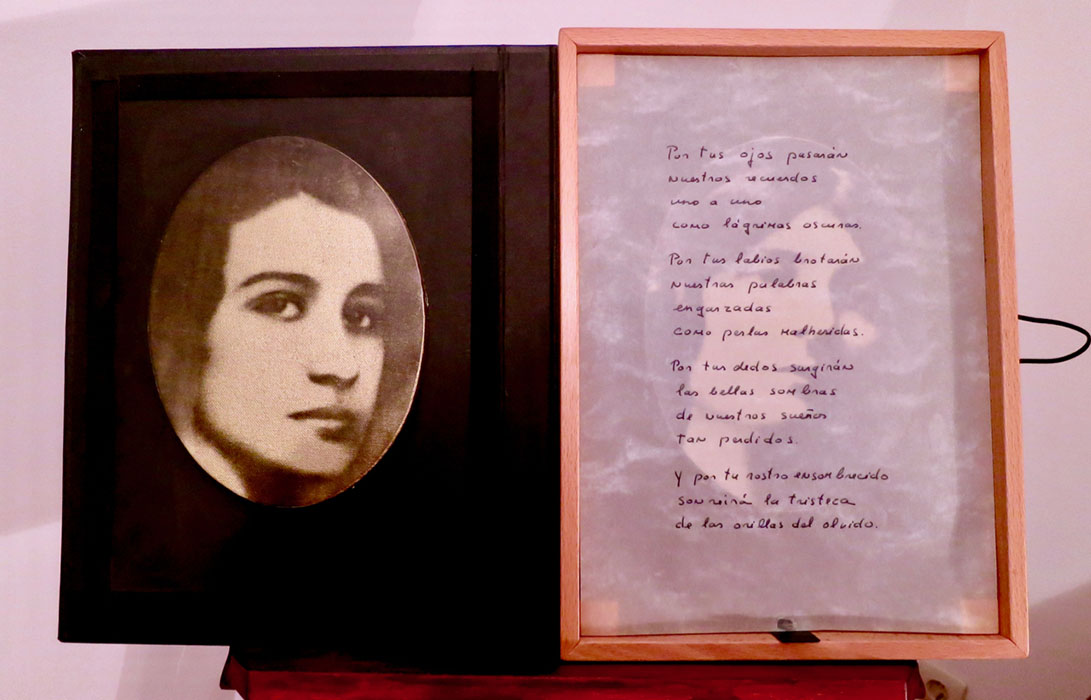 Por tus ojos pasarán
nuestros recuerdos
uno a uno
como lágrimas oscuras.
Por tus labios brotarán
nuestras palabras
engarzadas
como perlas malheridas.
Por tus dedos surgirán
las bellas sombras
de nuestros sueños
tan perdidos.
Y por tu rostro ensombrecido
sonreirá la tristeza
de las orillas del olvido.